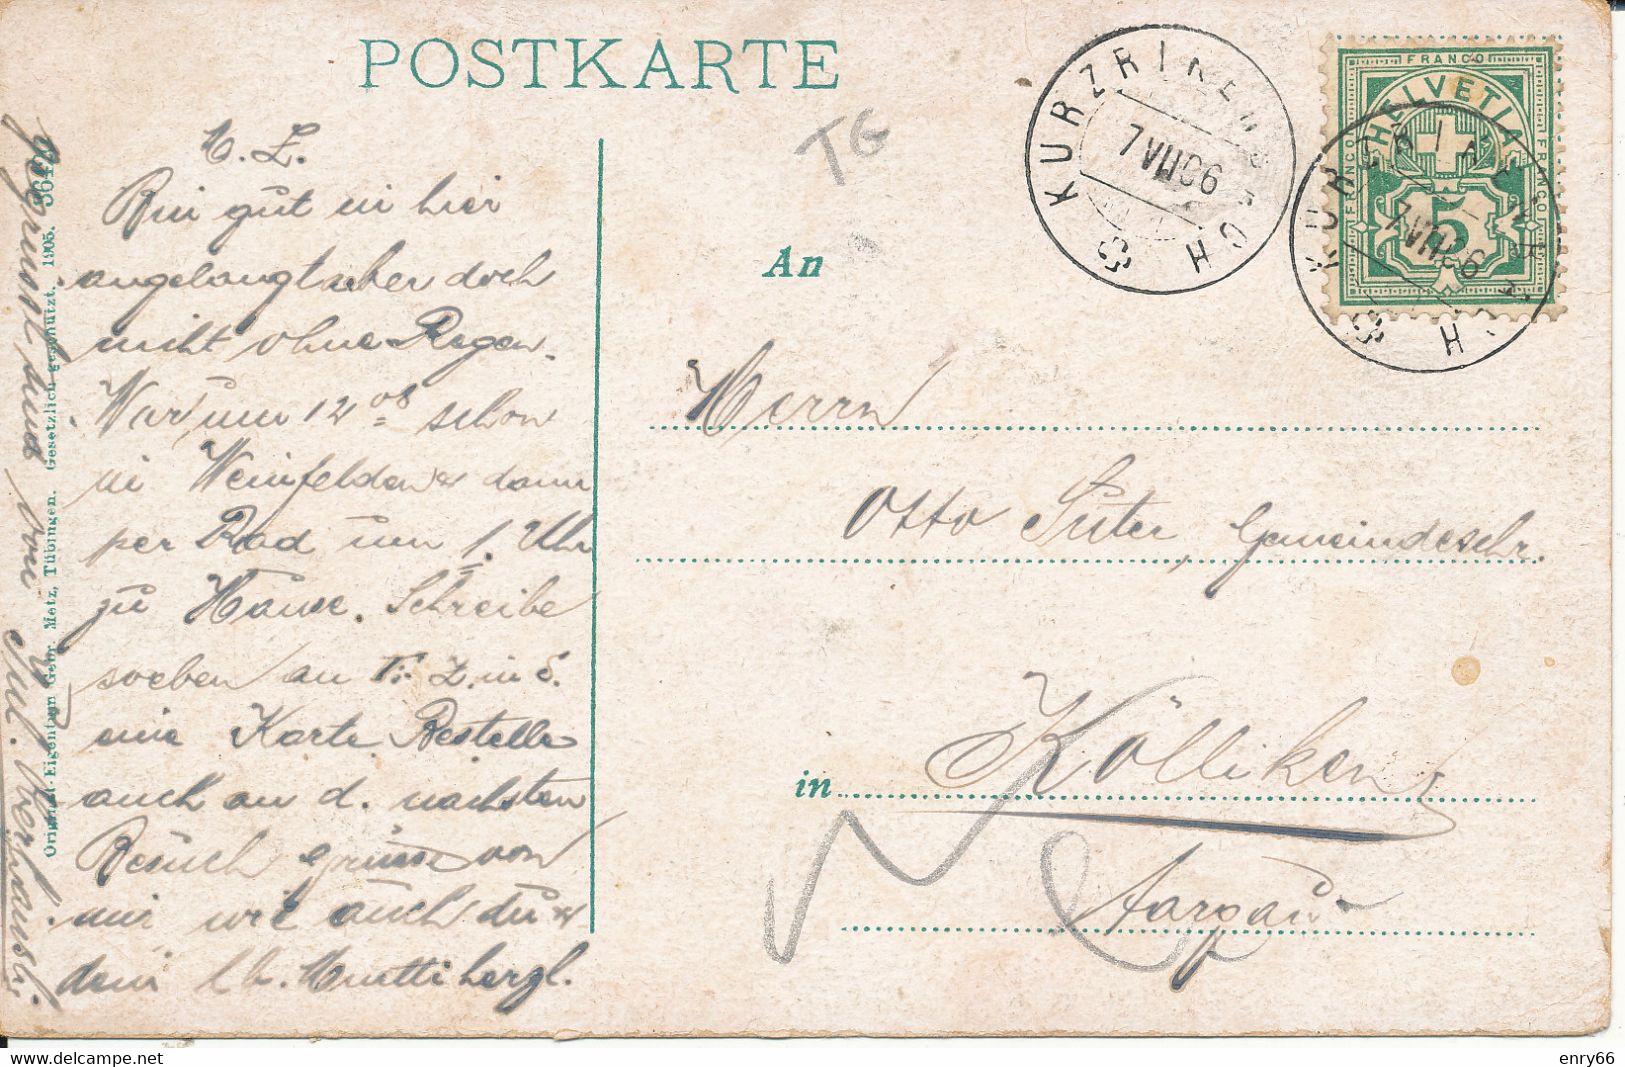 POSTKARTE
TG
KURZRIKENBACH
7 VIII 06
FRANCO
HELVETIA
FRANCO
FRANCO
5
7 VIII 06
L.
Bin gut in hier
angelangt aber doch
nicht ohne Regen.
War um 12 08 schon
in Weinfelden & dann
per Rad um 1. Uhr
zu Hause. Schreibe
soeben an
eine Karte. Bestelle
auch an d. nächsten
Besuch Grüsse von
mir wie auch du &
dein lb. Muetti herzl.
gegrüsst sind von
Jul.
Original-Eigentum Gebr. Metz, Tübingen. Gesetzlich geschützt. 1905.
An
Herrn
Otto Suter, Gemeindeschr.
in Kölliken
Aargau
enry66